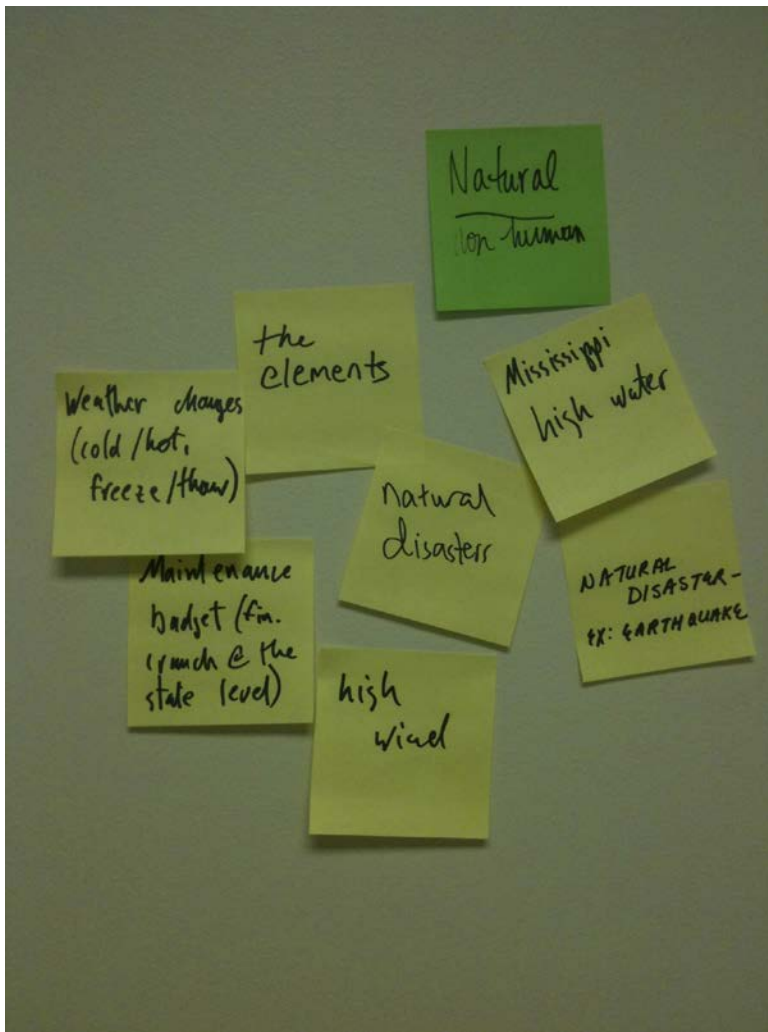 Natural
non-human
the
elements
Mississippi
high water
Weather changes
(cold/hot,
freeze/thaw)
natural
disasters
NATURAL
DISASTER-
EX: EARTHQUAKE
Maintenance
budget (fin.
crunch @ the
state level)
high
wind